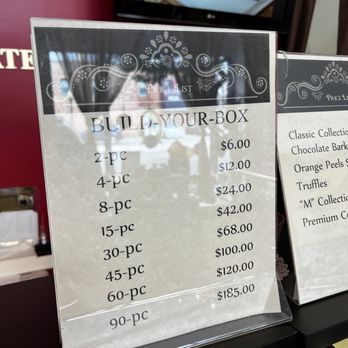 ATE
PRICE LIST
BUILD-YOUR-BOX
2-pc $6.00
4-pc $12.00
8-pc $24.00
15-pc $42.00
30-pc $68.00
45-pc $100.00
60-pc $120.00
90-pc $185.00
PRICE LIS
Classic Collectio
Chocolate Bark
Orange Peels
Truffles
"M" Collection
Premium Co